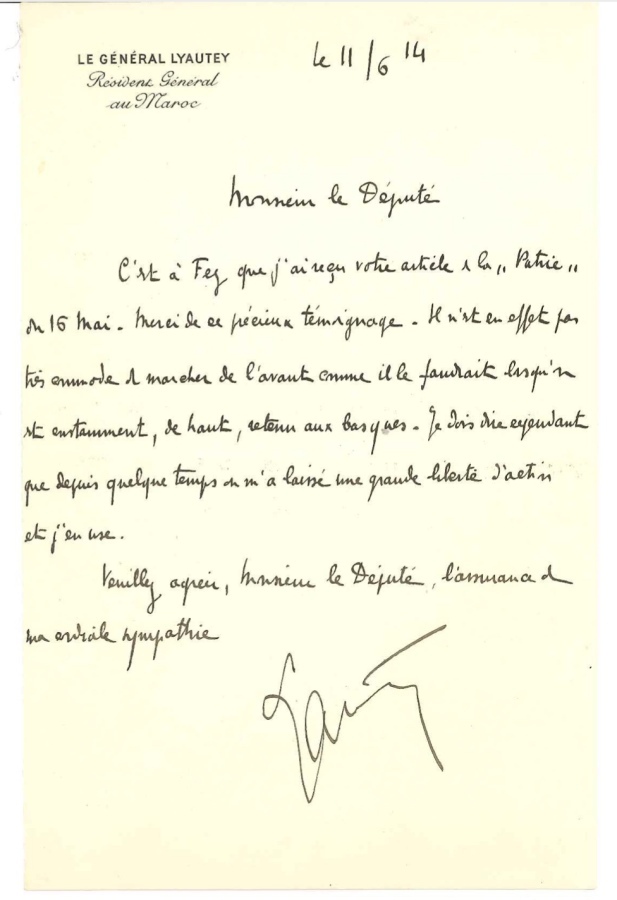 LE GÉNÉRAL LYAUTEY
Résident Général
au Maroc
le 11/6 14
Monsieur le Député
C'est à Fez que j'ai reçu votre article de la „Patrie„
du 16 Mai. Merci de ce précieux témoignage. Il n'est en effet pas
très commode de marcher de l'avant comme il le faudrait lorsqu'on
est constamment, de haut, retenu aux basques. Je dois dire cependant
que depuis quelque temps on m'a laissé une grande liberté d'action
et j'en use.
Veuillez agréer, Monsieur le Député, l'assurance de
ma cordiale sympathie
Lyautey